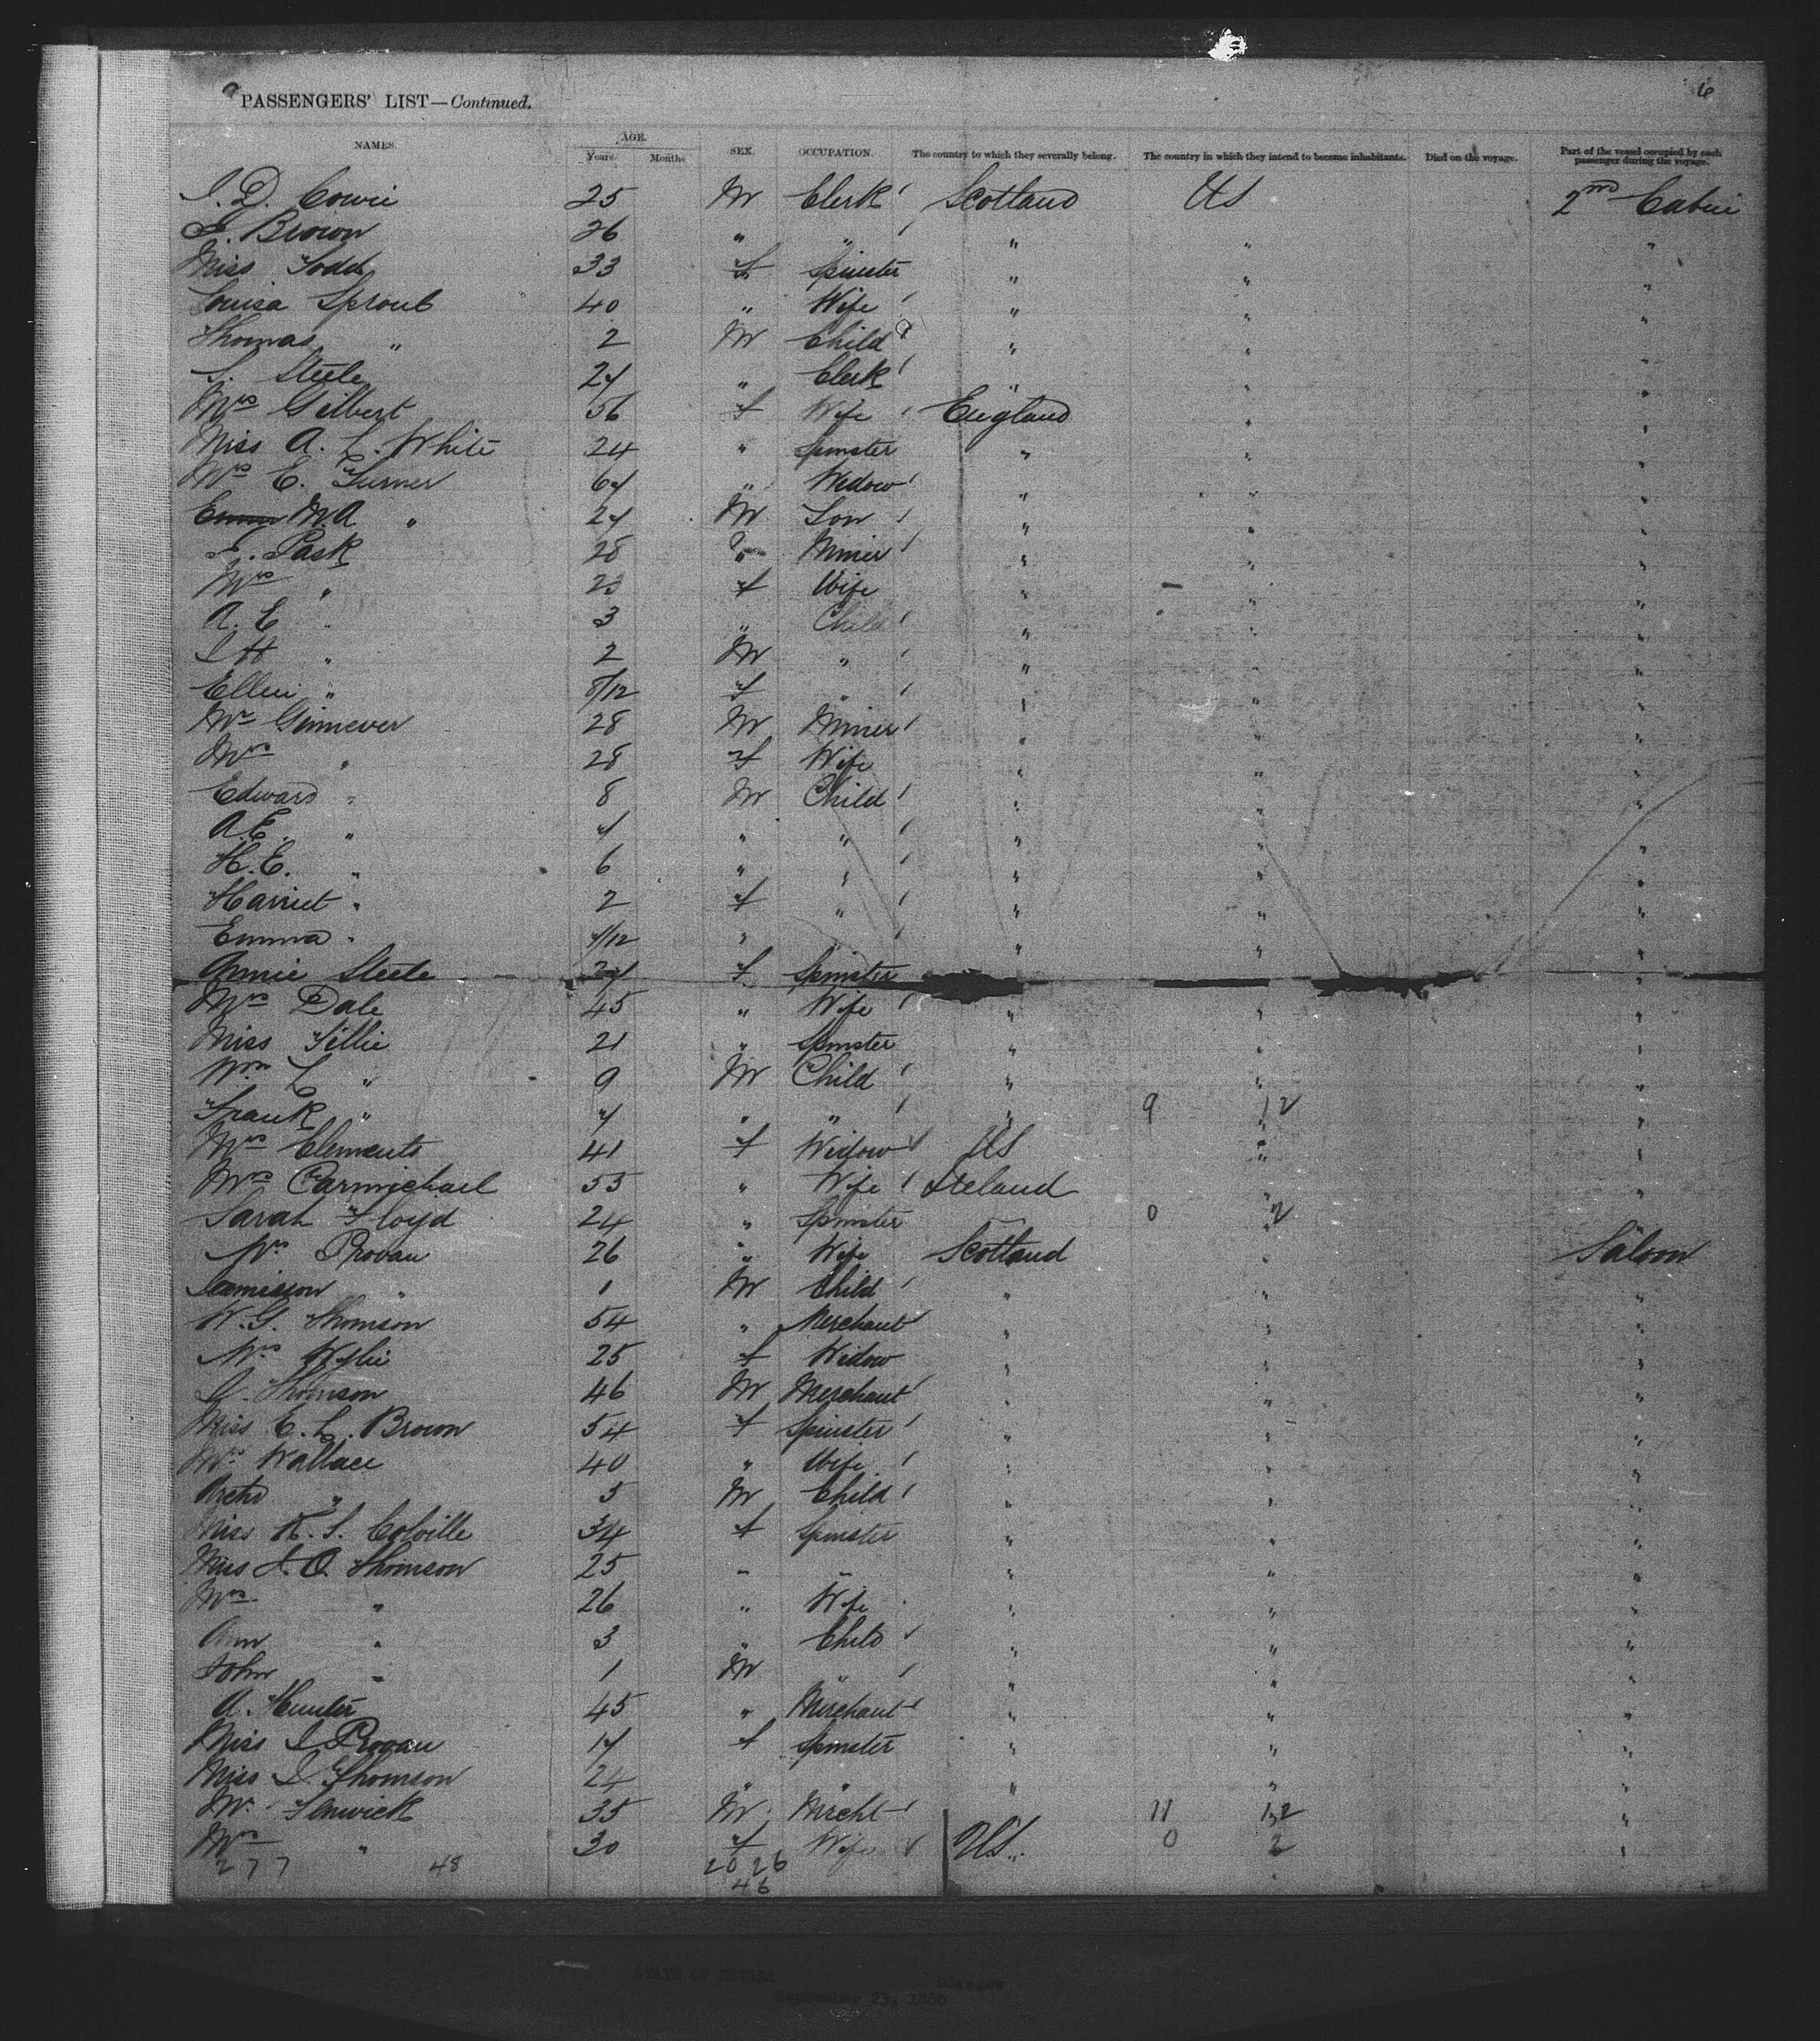 PASSENGERS' LIST—Continued.
6
NAMES. AGE. Years. Months SEX. OCCUPATION. The country to which they severally belong. The country in which they intend to become inhabitants. Died on the voyage. Part of the vessel occupied by each passenger during the voyage.
J. D. Cowie 25 M Clerk Scotland US 2nd Cabin
Brown 26 " " " " "
Miss Todd 33 f Spinster " " "
Louisa Sproul 40 " Wife " " "
Thomas " 2 M Child " " "
S. Steele 24 " Clerk " " "
Mrs Gilbert 56 f Wife England " "
Miss A. L. White 24 " Spinster " " "
Mrs E. Turner 64 " Widow " " "
M.A " 24 M Son " " "
Pask 28 " Miner " " "
Mrs " 23 f Wife " " "
A. E " 3 " Child " " "
" 2 M " " " "
Ellen " 8/12 f " " " "
Mr Ginnever 28 M Miner " " "
Mrs " 28 f Wife " " "
Edward " 8 M Child " " "
A.E. " 4 " " " " "
H.E. " 6 " " " " "
Harriet " 2 f " " " "
Emma " 4/12 " " " " "
Annie Steele 24 f Spinster " "
Mrs Dale 45 " Wife " " "
Miss Tillie 21 " Spinster " " "
Wm L " 9 M Child " " "
Frank " 4 " " " 9 12 "
Mrs Clements 41 f Widow US " "
Mrs Carmichael 55 " Wife Ireland " "
Sarah Floyd 24 " Spinster 0 2
Mrs Provan 26 " Wife Scotland " Saloon
Jamieson " 1 M Child " " "
W. G. Thomson 54 " Merchant " " "
Mrs Wylie 25 f Widow " " "
G. Thomson 46 M Merchant " " "
Miss C. L. Brown 54 f Spinster " " "
Mrs Wallace 40 " Wife " " "
Archd " 5 M Child " " "
Miss K. S. Colville 34 f Spinster " " "
Miss J. O. Thomson 25 " " " " "
Mrs " 26 " Wife " " "
Ann " 3 " Child " " "
John " 1 M " " " "
A. Hunter 45 " Merchant " " "
Miss Provan 14 f Spinster " " "
Miss Thomson 24 " " " " "
Mr Fenwick 35 M Mercht 11 12 "
Mrs " 30 f Wife US 0 2 "
277 48 20 26
46
STATE OF NEVADA Glasgow
September 23, 1880